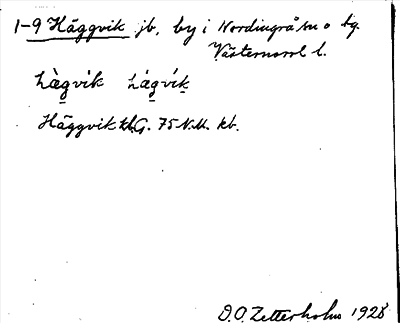 1-9 Häggvik jb, by i Nordingrå sn o tg.
Västernorrl l.
hä̀gvik hágvík
Häggvik kbG. 75 N.M. kb.
D.O. Zetterholm 1928